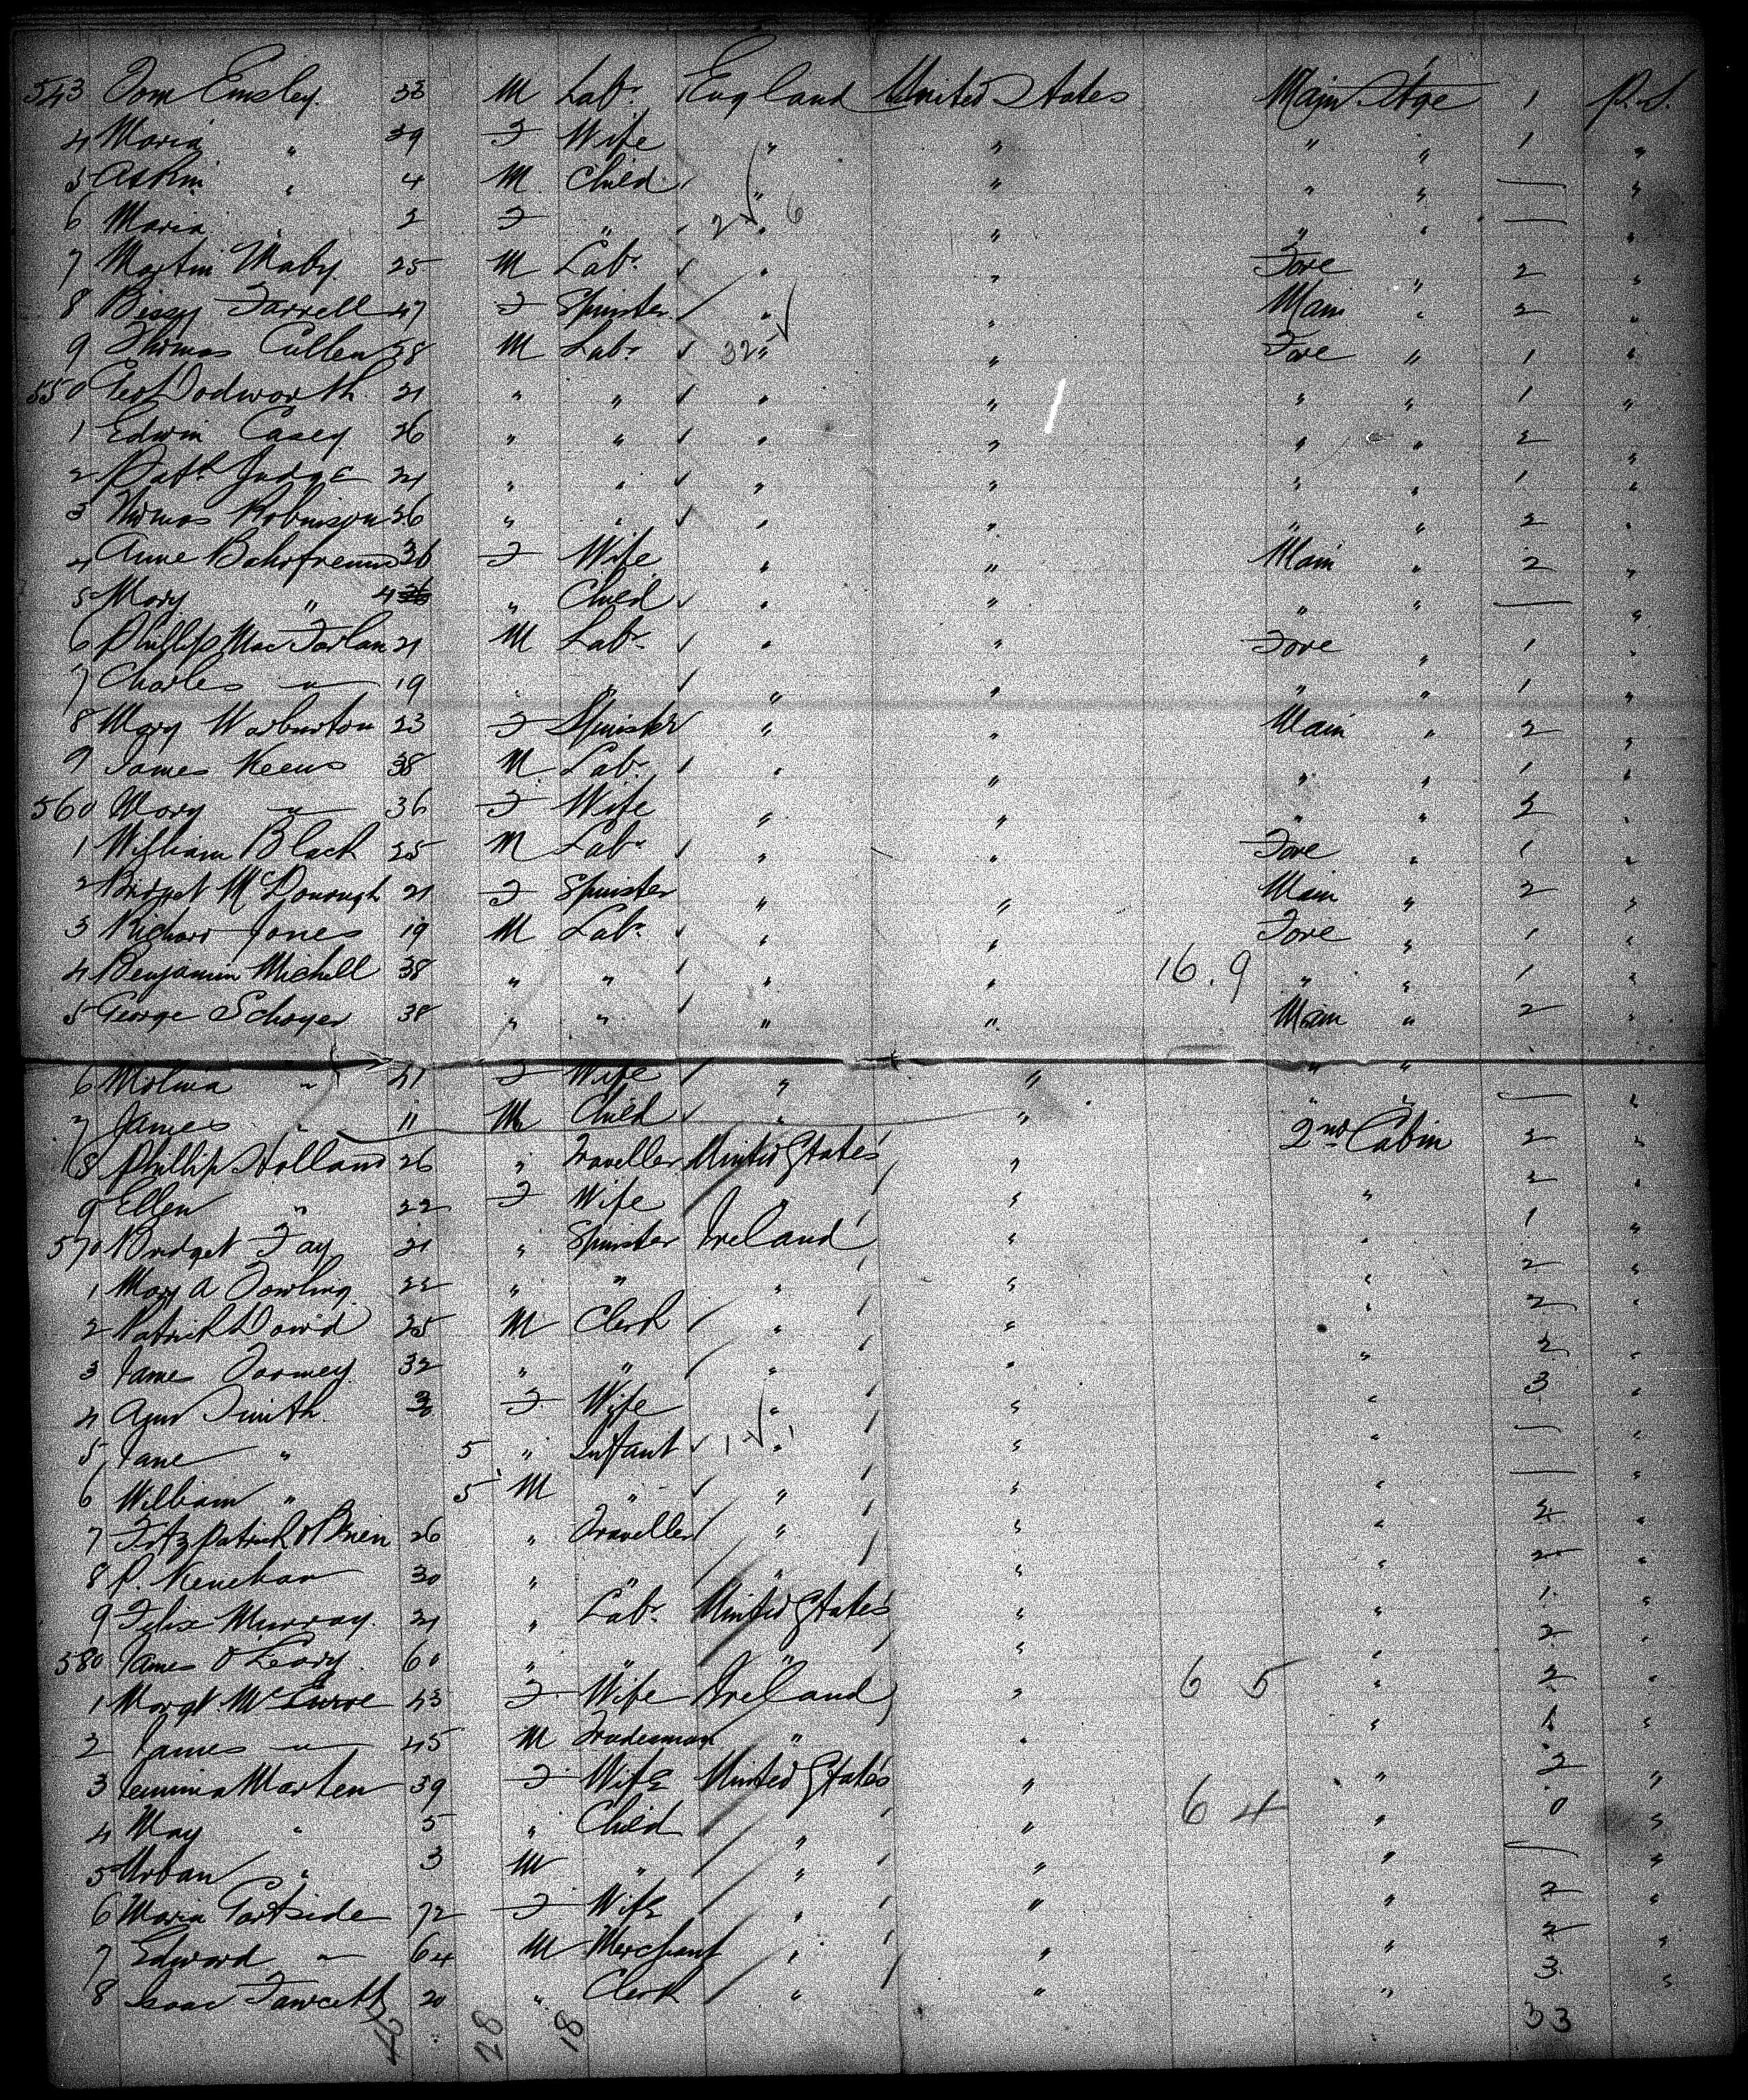 543 Tom Emsley 33 M Lab. England United States Main Stge 1 P.S.
4 Maria " 39 F Wife " " " " 1 "
5 " 4 M Child " " " " — "
6 Maria " 2 F " 2 6 " " " " — "
7 Martin Maby 25 M Lab. " " Fore " 2 "
8 Bissy Farrell 47 F Spinster " " Main " 2 "
9 Thomas Cullen 38 M Lab. 32 " " Fore " 1 "
550 Geo Dodworth 21 " " " " " " 1 "
1 Edwin Casey 26 " " " " " " 2 "
2 Patk Judge 21 " " " " " " 1 "
3 Thomas Robinson 26 " " " " " " 2 "
4 Anne 36 F Wife " " Main " 2 "
5 Mary " 4 " Child " " " " — "
6 Phillip Mac Farlan 21 M Lab. " " Fore " 1 "
7 Charles " 19 " " " " " " 1 "
8 Mary Warburton 23 F Spinster " " Main " 2 "
9 James Keens 38 M Lab. " " " " 1 "
560 Mary " 36 F Wife " " " " 2 "
1 William Black 25 M Lab. " " Fore " 1 "
2 Bridget McDonough 21 F Spinster " " Main " 2 "
3 Richard Jones 19 M Lab. " " Fore " 1 "
4 Benjamin Michell 38 " " " " 16.9 " " 1 "
5 George Schoyer 38 " " " " Main " 2 "
6 " 41 F Wife " " " "
7 James " 11 M Child " " " " — "
8 Phillip Holland 26 " Traveller United States " 2nd Cabin 2 "
9 Ellen " 22 F Wife " " 2 "
570 Bridget Fay 21 " Spinster Ireland " " 1 "
1 Mary A Dowling 22 " " " " " 2 "
2 Patrick Dowd 25 M Clerk " " " 2 "
3 James Tormey 32 " " " " " 2 "
4 Smith F Wife " " " 3 "
5 Jane " 5 " Infant 1 " 1 " " — "
6 William " 5 M " " " " — "
7 Fitzpatrick O'Brien 26 " Traveller " " " 2 "
8 P. 30 " " " " " 2 "
9 Felix Murray 21 " Lab. United States " " 1 "
580 James O'Leary 60 " " " " " 2 "
1 Margt. 43 F Wife Ireland " 6 5 " 2 "
2 James " 45 M Tradesman " " " 1 "
3 Jemima Marten 39 F Wife United States " " 2 "
4 May " 5 " Child " " 6 4 " 0 "
5 Urban " 3 M " " " " — "
6 Maria Gartside 72 F Wife " " " 2 "
7 Edward " 64 M Merchant " " " 2 "
8 Isaac Fawcett 20 " Clerk " " " 3 "
28 18 33